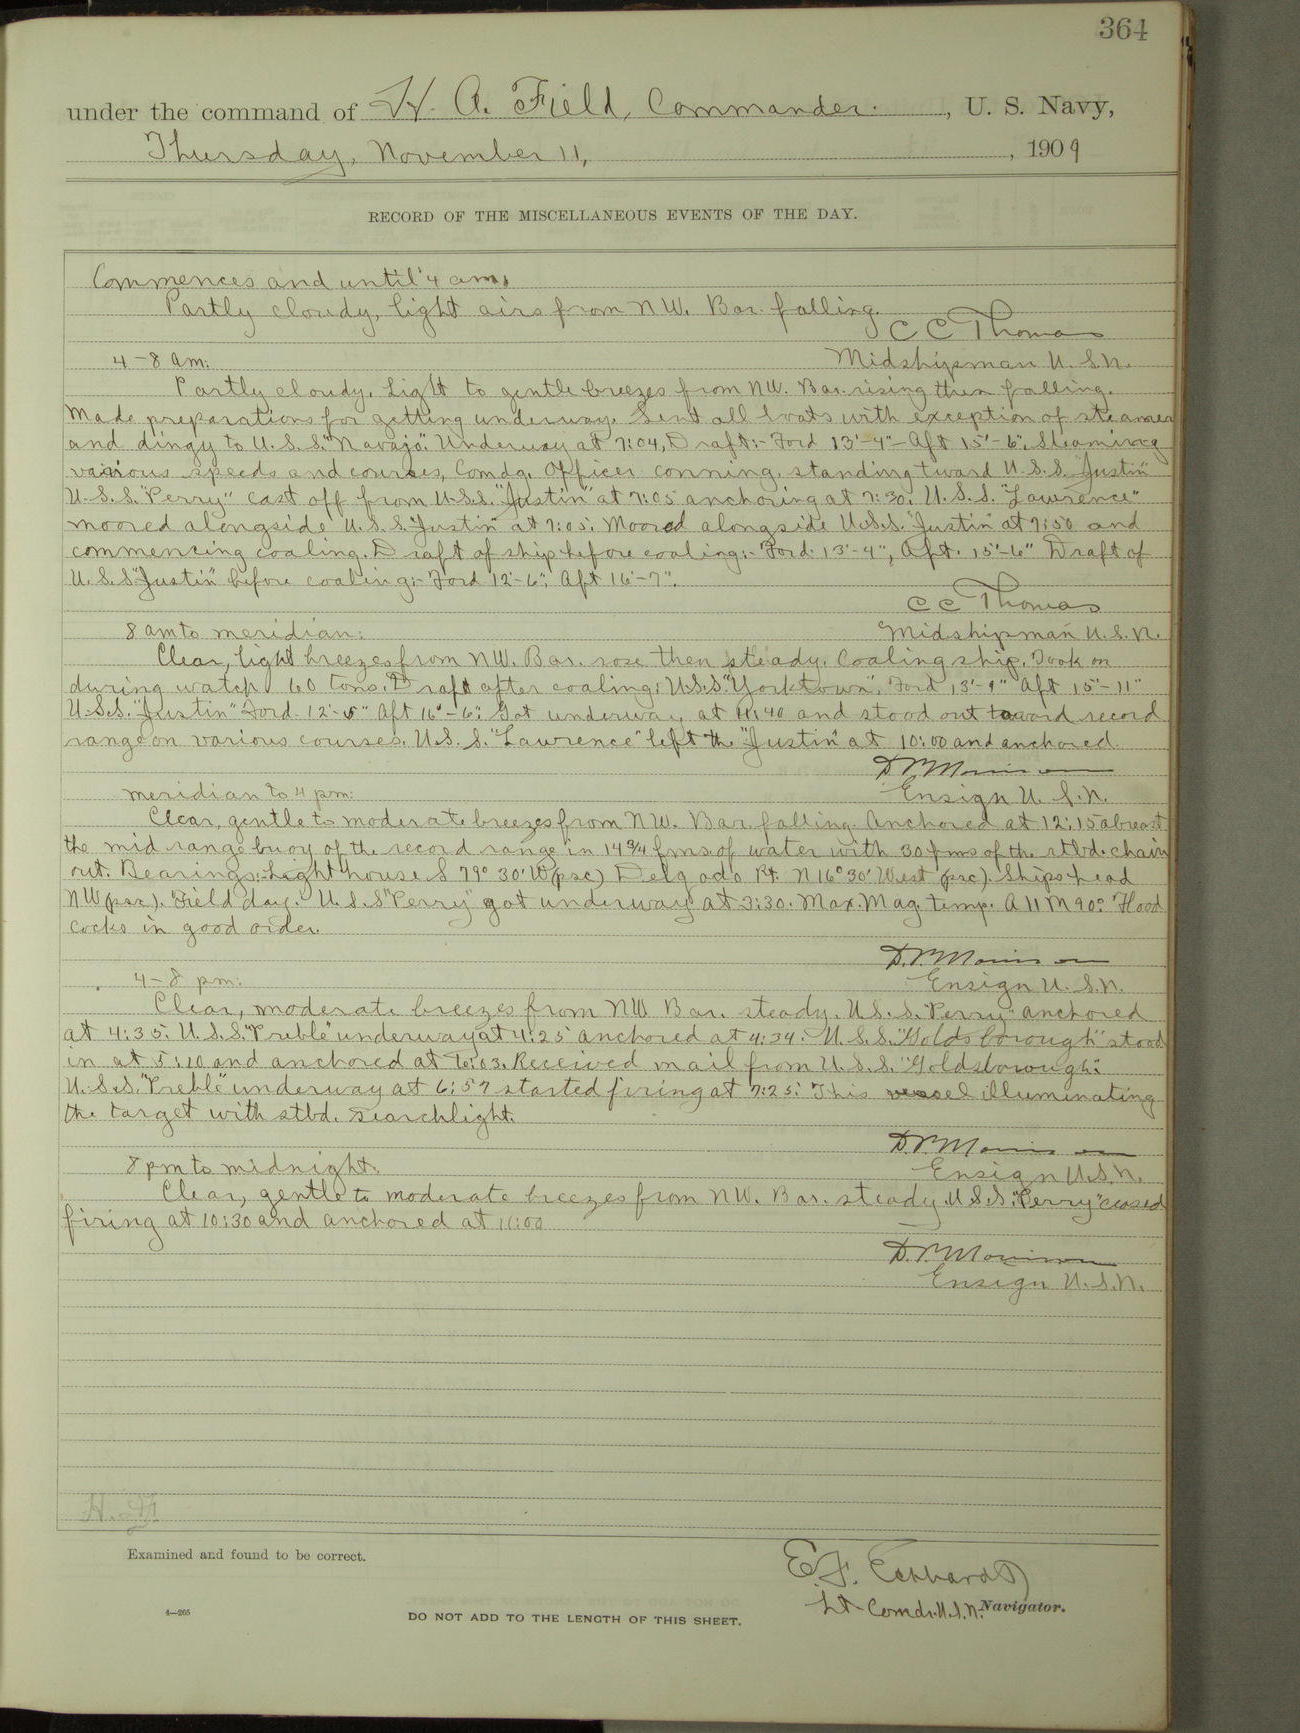 364
under the command of H. A. Field, Commander. , U. S. Navy,
Thursday, November 11, , 1909
RECORD OF THE MISCELLANEOUS EVENTS OF THE DAY.
Commences and until 4 am.
Partly cloudy, light airs from NW. Bar. falling.
C C Thomas
Midshipman U. S. N.
4-8 am:
Partly cloudy. Light to gentle breezes from NW. Bar. rising then falling.
Made preparations for getting underway. Sent all boats with exception of steamer
and dingy to U. S. S. "Navajo". Underway at 7:04, Draft:- Ford 13'-4"- Aft 15'-6". Steaming
various speeds and courses, Comdg. Officer conning, standing tward U. S. S. "Justin"
U. S. S. "Perry" cast off from U.S.S. "Justin" at 7:05 anchoring at 7:30. U. S. S. "Lawrence"
moored alongside U. S. S. "Justin" at 7:05. Moored alongside U.S.S. "Justin" at 7:50 and
commencing coaling. Draft of ship before coaling:- Ford. 13'-4", Aft. 15'-6" Draft of
U. S. S "Justin" before coaling:- Ford 12'-6", Aft 16'-7".
C C Thomas
Midshipman U. S. N.
8 am to meridian:
Clear, light breezes from NW. Bar. rose then steady. Coaling ship. Took on
during watch 60 tons. Draft after coaling: U.S.S. "Yorktown", Ford 13'-9" Aft 15'-11"
U.S.S. "Justin" Ford. 12'-5" Aft 16'-6". Got underway at 11:40 and stood out toward record
range on various courses. U. S. S. "Lawrence" left the "Justin" at 10:00 and anchored.
Ensign U. S. N.
meridian to 4 pm:
Clear, gentle to moderate breezes from NW. Bar. falling. Anchored at 12:15 abreast
the mid range buoy of the record range in 14 3/4 fms of water with 30 fms of the stbd. chain
out. Bearings:- Light house S 79° 30' W (psc) Delgado Pt. N 16° 30' West (psc). Ships head
NW (psc). Field day. U. S. S "Perry" got underway at 3:30. Max. Mag. temp. A 11 M 90° Flood
cocks in good order.
Ensign U. S. N.
4-8 pm:
Clear, moderate breezes from NW Bar. steady. U. S. S. "Perry" anchored
at 4:35. U.S.S. "Preble" underway at 4:25 anchored at 4:34. U. S. S. "Goldsborough" stood
in at 5:10 and anchored at 6:03. Received mail from U. S. S. "Goldsborough".
U.S.S. "Preble" underway at 6:57 started firing at 7:25. This vessel illuminating
the target with stbd. searchlight.
Ensign U.S.N.
8 pm to midnight.
Clear, gentle to moderate breezes from NW. Bar. steady. U S S. "Perry" ceased
firing at 10:30 and anchored at 11:00
D. P. Morrison
Ensign U. S. N.
Examined and found to be correct.
Lt. Comdr. U. S. N. Navigator.
4—265
DO NOT ADD TO THE LENGTH OF THIS SHEET.